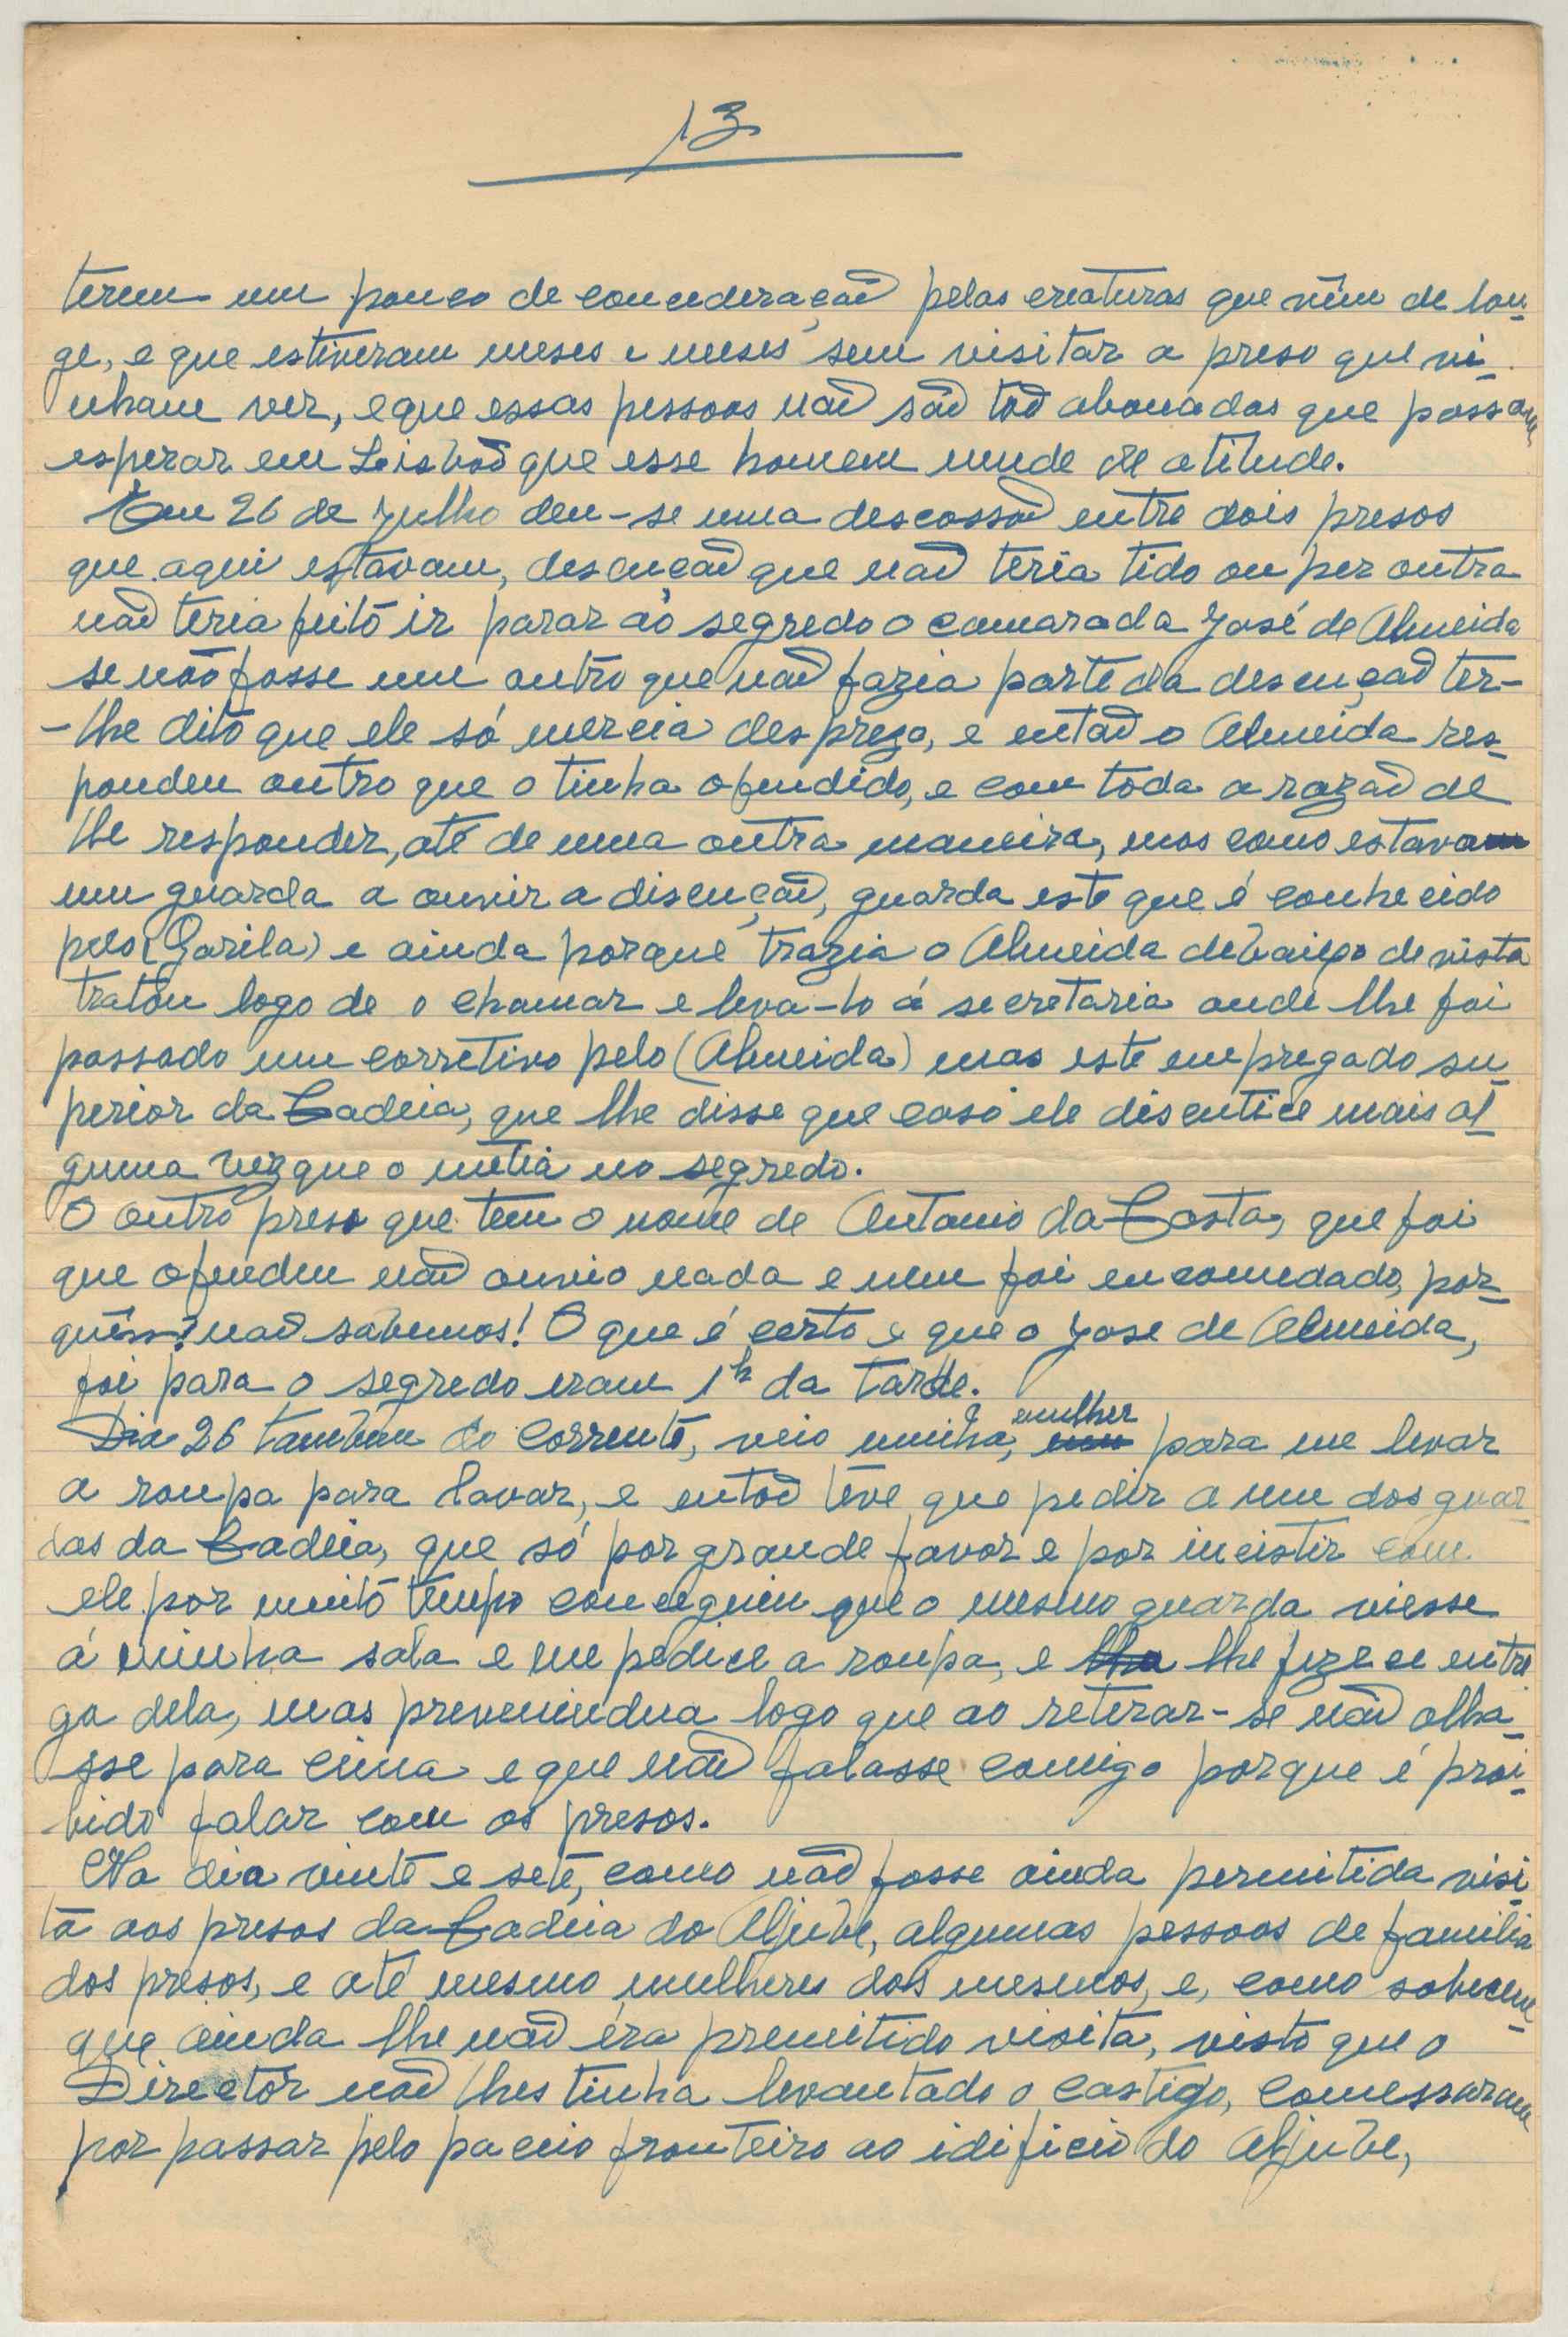 13
terem um pouco de concederação pelas creaturas que vêm de lon-
ge, e que estiveram meses e meses sem visitar o preso que vi-
nham ver, e que essas pessoas não são tão abonadas que possam
esperar em Leisbôa que esse homem mude de atitude.
Em 26 de Julho deu-se uma descossão entre dois presos
que aqui estavam, descução que não teria tido ou per outra
não teria feito ir parar ao segredo o camarada José de Almeida
se não fosse um outro que não fazia parte da descução ter-
-lhe dito que ele só mercia desprezo, e então o Almeida res-
pondeu outro que o tinha ofendido, e com toda a razão de
lhe responder, até de uma outra maneira, mas como estava
um guarda a ouvir a discução, guarda este que é conhecido
pelo (Gorila) e ainda porque trazia o Almeida debaixo de vista
tratou logo de o chamar e leva-lo á secretaria onde lhe foi
passado um corretivo pelo (Almeida) mas este empregado su-
perior da Cadeia, que lhe disse que caso ele discutice mais al-
guma vez que o metia no segredo.
O outro preso que tem o nome de Antonio da Costa, que foi
que ofendeu não ouvio nada e nem foi encomodado, por-
quê? não sabemos! O que é certo e que o Jose de Almeida,
foi para o segredo eram 1h da tarde.
Dia 26 tambem do corrente, veio minha, mulher para me levar
a roupa para lavar, e então teve que pedir a um dos guar-
das da Cadeia, que só por grande favor e por incistir com
ele por muito tempo conceguiu que o mesmo guarda viesse
á minha sala e me pedice a roupa, e lhe fizece entre
ga dela, mas prevenindua logo que ao reterar-se não olha-
sse para cima e que não falasse comigo porque é proi-
bido falar com os presos.
No dia vinte e sete, como não fosse ainda permitida visi-
ta aos presos da Cadeia do Aljube, algumas pessoas de familia
dos presos, e até mesmo mulheres dos mesmos, e, como sobecem
que ainda lhe não era premitido visita, visto que o
Director não lhes tinha levantado o castigo, comessaram
por passar pelo paceio fronteiro ao idificio do Aljube,